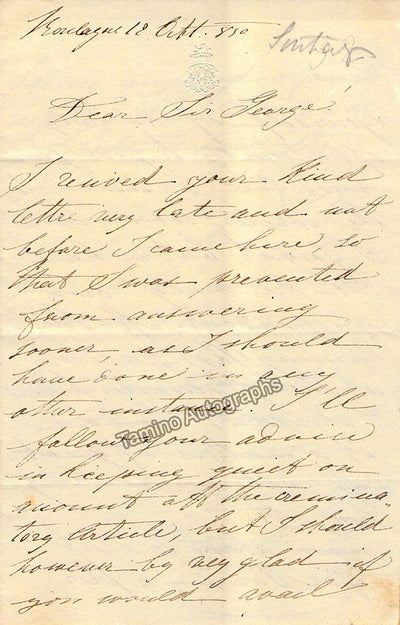 Boulogne 18 Oct. 850
Sontag
Dear Sir George!
I recived your kind
lettre very late and not
before I came here, so
that I was prevented
from answering
sooner, as I should
have done in any
other instance. I'll
follow your advice
in keeping quiet on
amount off the crimina
tory article, but I should
however by very glad if
you would avail
Tamino Autographs